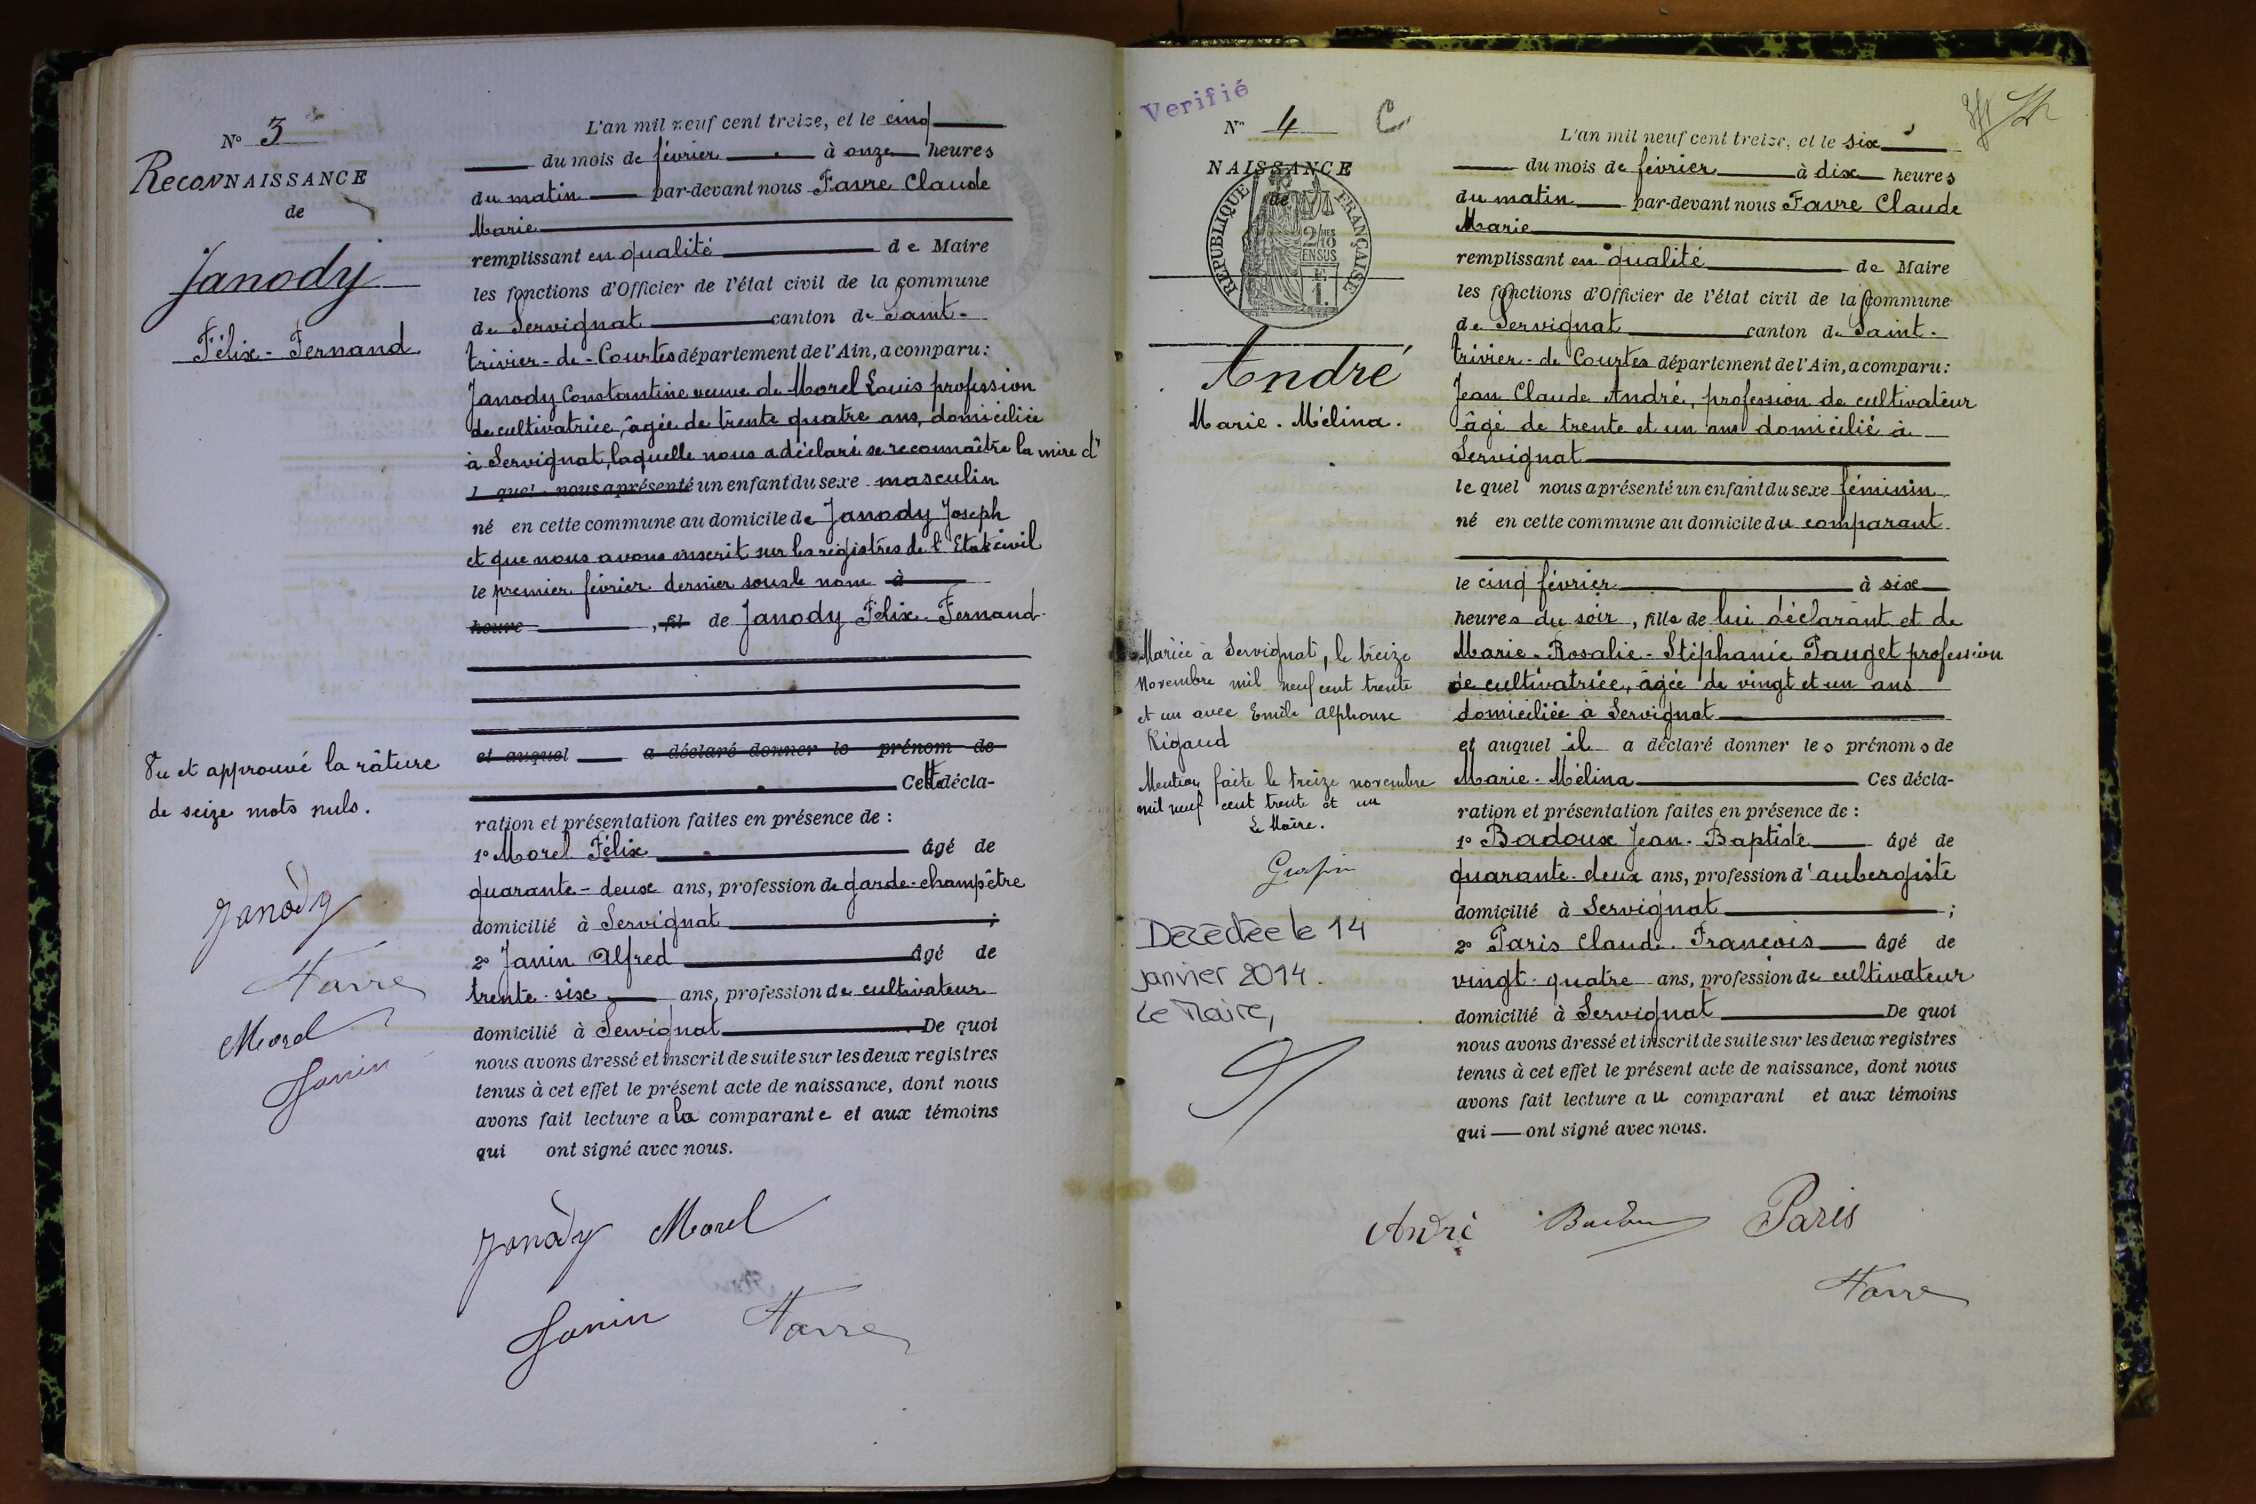 N° 3
RECONNAISSANCE
de
Janody
Félix-Fernand
L'an mil neuf cent treize, et le cinq
du mois de février à onze heures
du matin par-devant nous Favre Claude
Marie
remplissant en qualité de Maire
les fonctions d'Officier de l'état civil de la commune
de Servignat canton de Saint-
trivier-de-Courtes département de l'Ain, a comparu:
Janody Constantine veuve de Morel Louis profession
de cultivatrice, âgée de trente quatre ans, domiciliée
à Servignat, laquelle nous a déclaré se reconnaître la mère d'
l quel nous a présenté un enfant du sexe masculin
né en cette commune au domicile de Janody Joseph
et que nous avons inscrit sur les registres de l'Etat civil
le premier février dernier sous le nom à
heure , fil de Janody Félix-Fernand
et auquel a déclaré donner le prénom de
Cette décla-
ration et présentation faites en présence de :
1° Morel Félix âgé de
quarante-deux ans, profession de garde-champêtre
domicilié à Servignat ;
2° Janin Alfred âgé de
trente-six ans, profession de cultivateur
domicilié à Servignat De quoi
nous avons dressé et inscrit de suite sur les deux registres
tenus à cet effet le présent acte de naissance, dont nous
avons fait lecture a la comparante et aux témoins
qui ont signé avec nous.
Vu et approuvé la râture
de seize mots nuls.
Janody
Favre
Morel
Janin
Janody Morel
Janin Favre
Verifié
N° 4 C
NAISSANCE
de
REPUBLIQUE FRANÇAISE
2/10 MES
EN SUS
F
1.
André
Marie-Mélina.
L'an mil neuf cent treize, et le six
du mois de février à dix heures
du matin par-devant nous Favre Claude
Marie
remplissant en qualité de Maire
les fonctions d'Officier de l'état civil de la commune
de Servignat canton de Saint-
trivier-de Courtes département de l'Ain, a comparu:
Jean Claude André, profession de cultivateur
âgé de trente et un ans domicilié à
Servignat
le quel nous a présenté un enfant du sexe féminin
né en cette commune au domicile du comparant
le cinq février à six
heures du soir, fille de lui déclarant et de
Marie-Rosalie-Stéphanie Pauget profession
de cultivatrice, âgée de vingt et un ans
domiciliée à Servignat
et auquel il a déclaré donner les prénoms de
Marie-Mélina Ces décla-
ration et présentation faites en présence de :
1° Badoux Jean-Baptiste âgé de
quarante-deux ans, profession d'aubergiste
domicilié à Servignat ;
2° Paris Claude François âgé de
vingt-quatre ans, profession de cultivateur
domicilié à Servignat De quoi
nous avons dressé et inscrit de suite sur les deux registres
tenus à cet effet le présent acte de naissance, dont nous
avons fait lecture au comparant et aux témoins
qui ont signé avec nous.
Mariée à Servignat, le treize
Novembre mil neuf cent trente
et un avec Emile Alphonse
Rigaud
Mention faite le treize novembre
mil neuf cent trente et un
Le Maire.
Décédée le 14
janvier 2014.
Le Maire,
André Badoux Paris
Favre